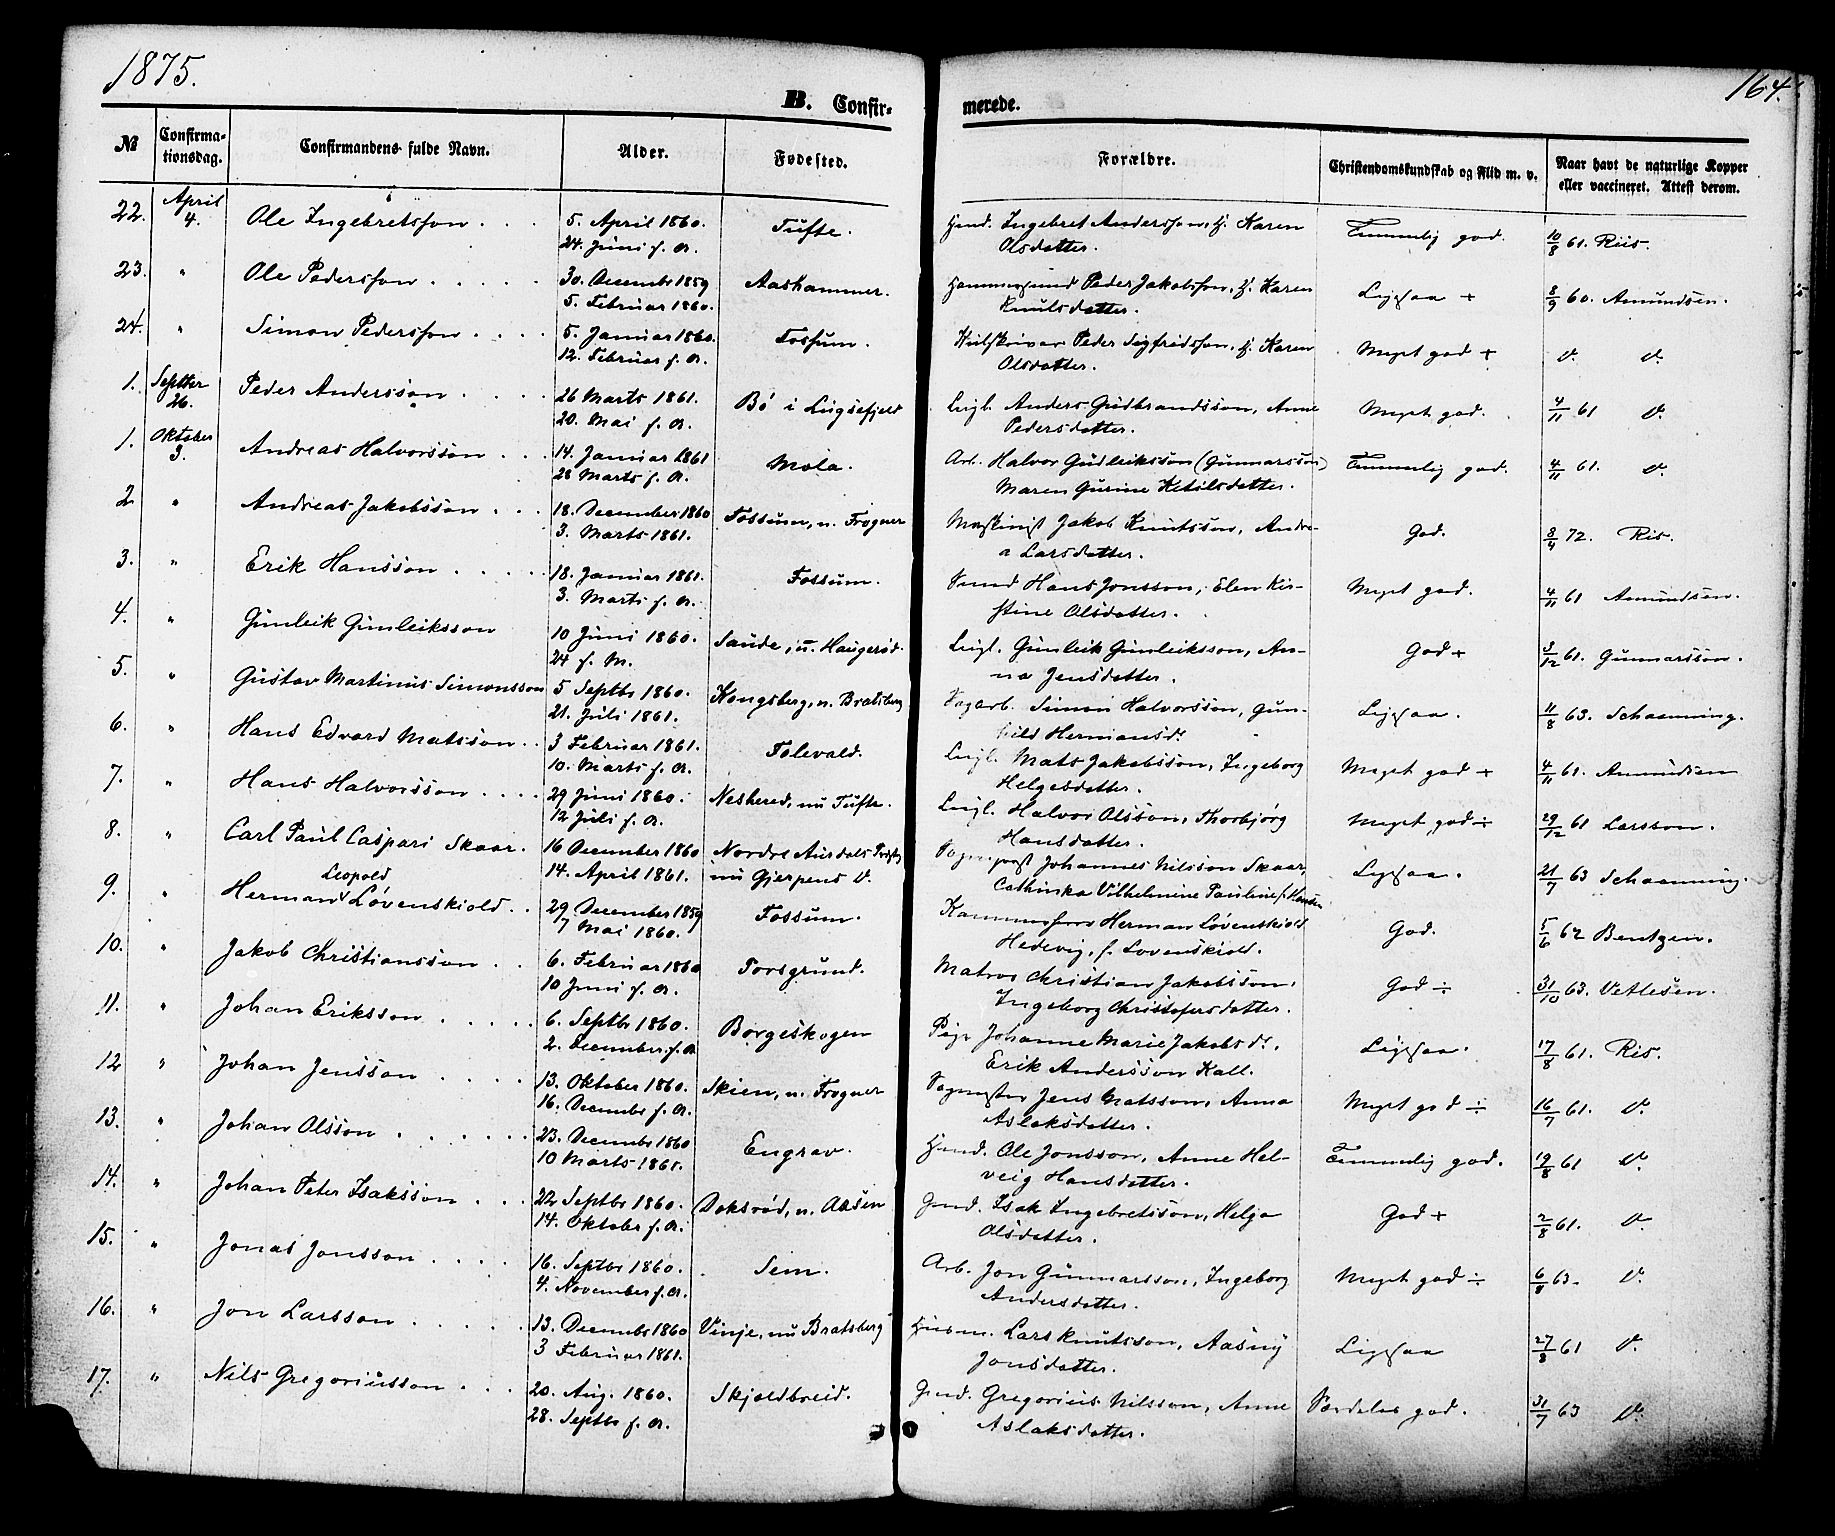 1875.
164.
B. Confir-
merede.
№ Confirma- Confirmandens fulde Navn. Alder. Fødested. Forældre. Christendomskundskab og Flid m. v. Naar havt de naturlige Kopper
tionsdag. eller vaccineret. Attest derom.
22. April Ole Ingebretsson 5. April 1860. Tufte. Gmd. Ingebret Andersson, H. Karen Temmelig god. 10/8 61. Riis.
4. 24. Juni s. A. Olsdatter.
23. " Ole Pedersson 30. December 1859 Aashammer. Hammersmed Peder Jakobsson, H. Karen Ligesaa + 8/9 60. Amundsen.
5. Februar 1860. Knutsdatter.
24. " Simon Pedersson 5. Januar 1860. Fossum. Peder Sigfridsson, H. Karen Meget god + d. d.
12. Februar s. A. Olsdatter.
1. Septber Peder Andersson 26 Marts 1861. Bö i Lugsefjeld Leigl. Anders Gudbrandsson, Anne Meget god. 4/11 61 d.
26. 20. Mai s. A. Pedersdatter.
1. Oktober Andreas Halvorsson 14. Januar 1861 Mæla. Arb. Halvor Gudleiksson (Gunnarsson) Temmelig god. 4/11 61. d.
3. 28 Marts s. A. Maren Gurine Ketilsdatter.
2 " Andreas Jakobsson 18. December 1860 Fossum, n. Frogner Maskinist Jakob Knutsson, Andre- God. 8/4 72. Ris.
3. Marts 1861. a Larsdatter.
3. " Erik Hansson 18. Januar 1861. Fossum. Smed Hans Jonsson, Elen Kir- Meget god. 4/11 61 Amundsen.
3. Marts s. A. stine Olsdatter.
4. " Gunleik Gunleiksson 10 Juni 1860. Saude, n. Haugerød. Leigl. Gunleik Gunleiksson, An- God + 3/12 61. Gunnarsson.
24 s. M. na Jensdatter.
5. " Gustav Martinus Simonsson 5 Septbr 1860. Kongsberg, n. Bratsberg Sagarb. Simon Halvorsson, Gun- Ligesaa. 11/8 63. Schaanning.
21. Juli 1861. hild Hermansd.
6. " Hans Edvard Matsson 3 Februar 1861. Folevald. Leigl. Mats Jakobsson, Ingeborg Meget god + 4/11 61. Amundsen
10. Marts s. A. Helgesdatter.
7. " Hans Halvorsson 29 Juni 1860. Neshered, nu Tufte. Leigl. Halvor Olsson, Thorbjörg Meget god ÷ 29/12 61 Larsson.
12 Juli s. A. Hansdatter.
8. " Carl Paul Caspari Skaar. 16 December 1860 Nordre Aurdals Præstg. Johannes Nilsson Skaar, Ligesaa. 21/7 63 Schaanning.
14. April 1861. nu Gjerpens d. Cathinka Vilhelmine Pauline f. Hansen
9. " Herman Leopold Løvenskiold 29 December 1859 Fossum. Kammerherre Herman Løvenskiold God. 5/6 62 Bentzen.
7 Mai 1860. Hedevig, f. Løvenskiold.
10. " Jakob Christiansson 6. Februar 1860 Porsgrund. Matros Christian Jakobsson, God ÷ 31/10 63. Vetlesen.
10 Juni s. A. Ingeborg Christofersdatter.
11. " Johan Eriksson 6. Septbr 1860. Borgeskogen Pige Johanne Marie Jakobsd. Ligesaa. 17/8 61. Ris.
2. December s. A Erik Andersson Kall.
12 " Johan Jensson 13. Oktober 1860. Skien, n. Frogner Sagmester Jens Matsson, Anna Meget god ÷ 16/7 61. d.
16. Decembr s. A. Aslaksdatter.
13. " Johan Olsson 23. Decembr 1860 Engrav. Gmd. Ole Jonsson, Anne Hel- Temmelig god. 19/8 61 d.
10 Marts 1861. veig Hansdatter.
14. " Johan Peter Isaksson 22 Septbr 1860. Doksrød, n. Aasen Gmd. Isak Ingebretsson, Helge God + 2/8 61. d.
14. Oktober s. A. Olsdatter.
15. " Jonas Jonsson 16. Septbr 1860. Sem. Arb. Jon Gunnarsson, Ingeborg Meget god ÷ 6/8 63. d.
4. November s. A. Andersdatter.
16. " Jon Larsson 13. Decembr 1860 Vinje, nu Bratsberg Husm. Lars Knutsson, Aasny Ligesaa 27/8 61 d.
3 Februar 1861. Jonsdatter.
17. " Nils Gregoriusson 20. Aug. 1860. Skjoldbreid. Gmd. Gregorius Nilsson, Anne Særdeles god. 31/7 63 d.
28. Septbr s. A. Aslaksdatter.